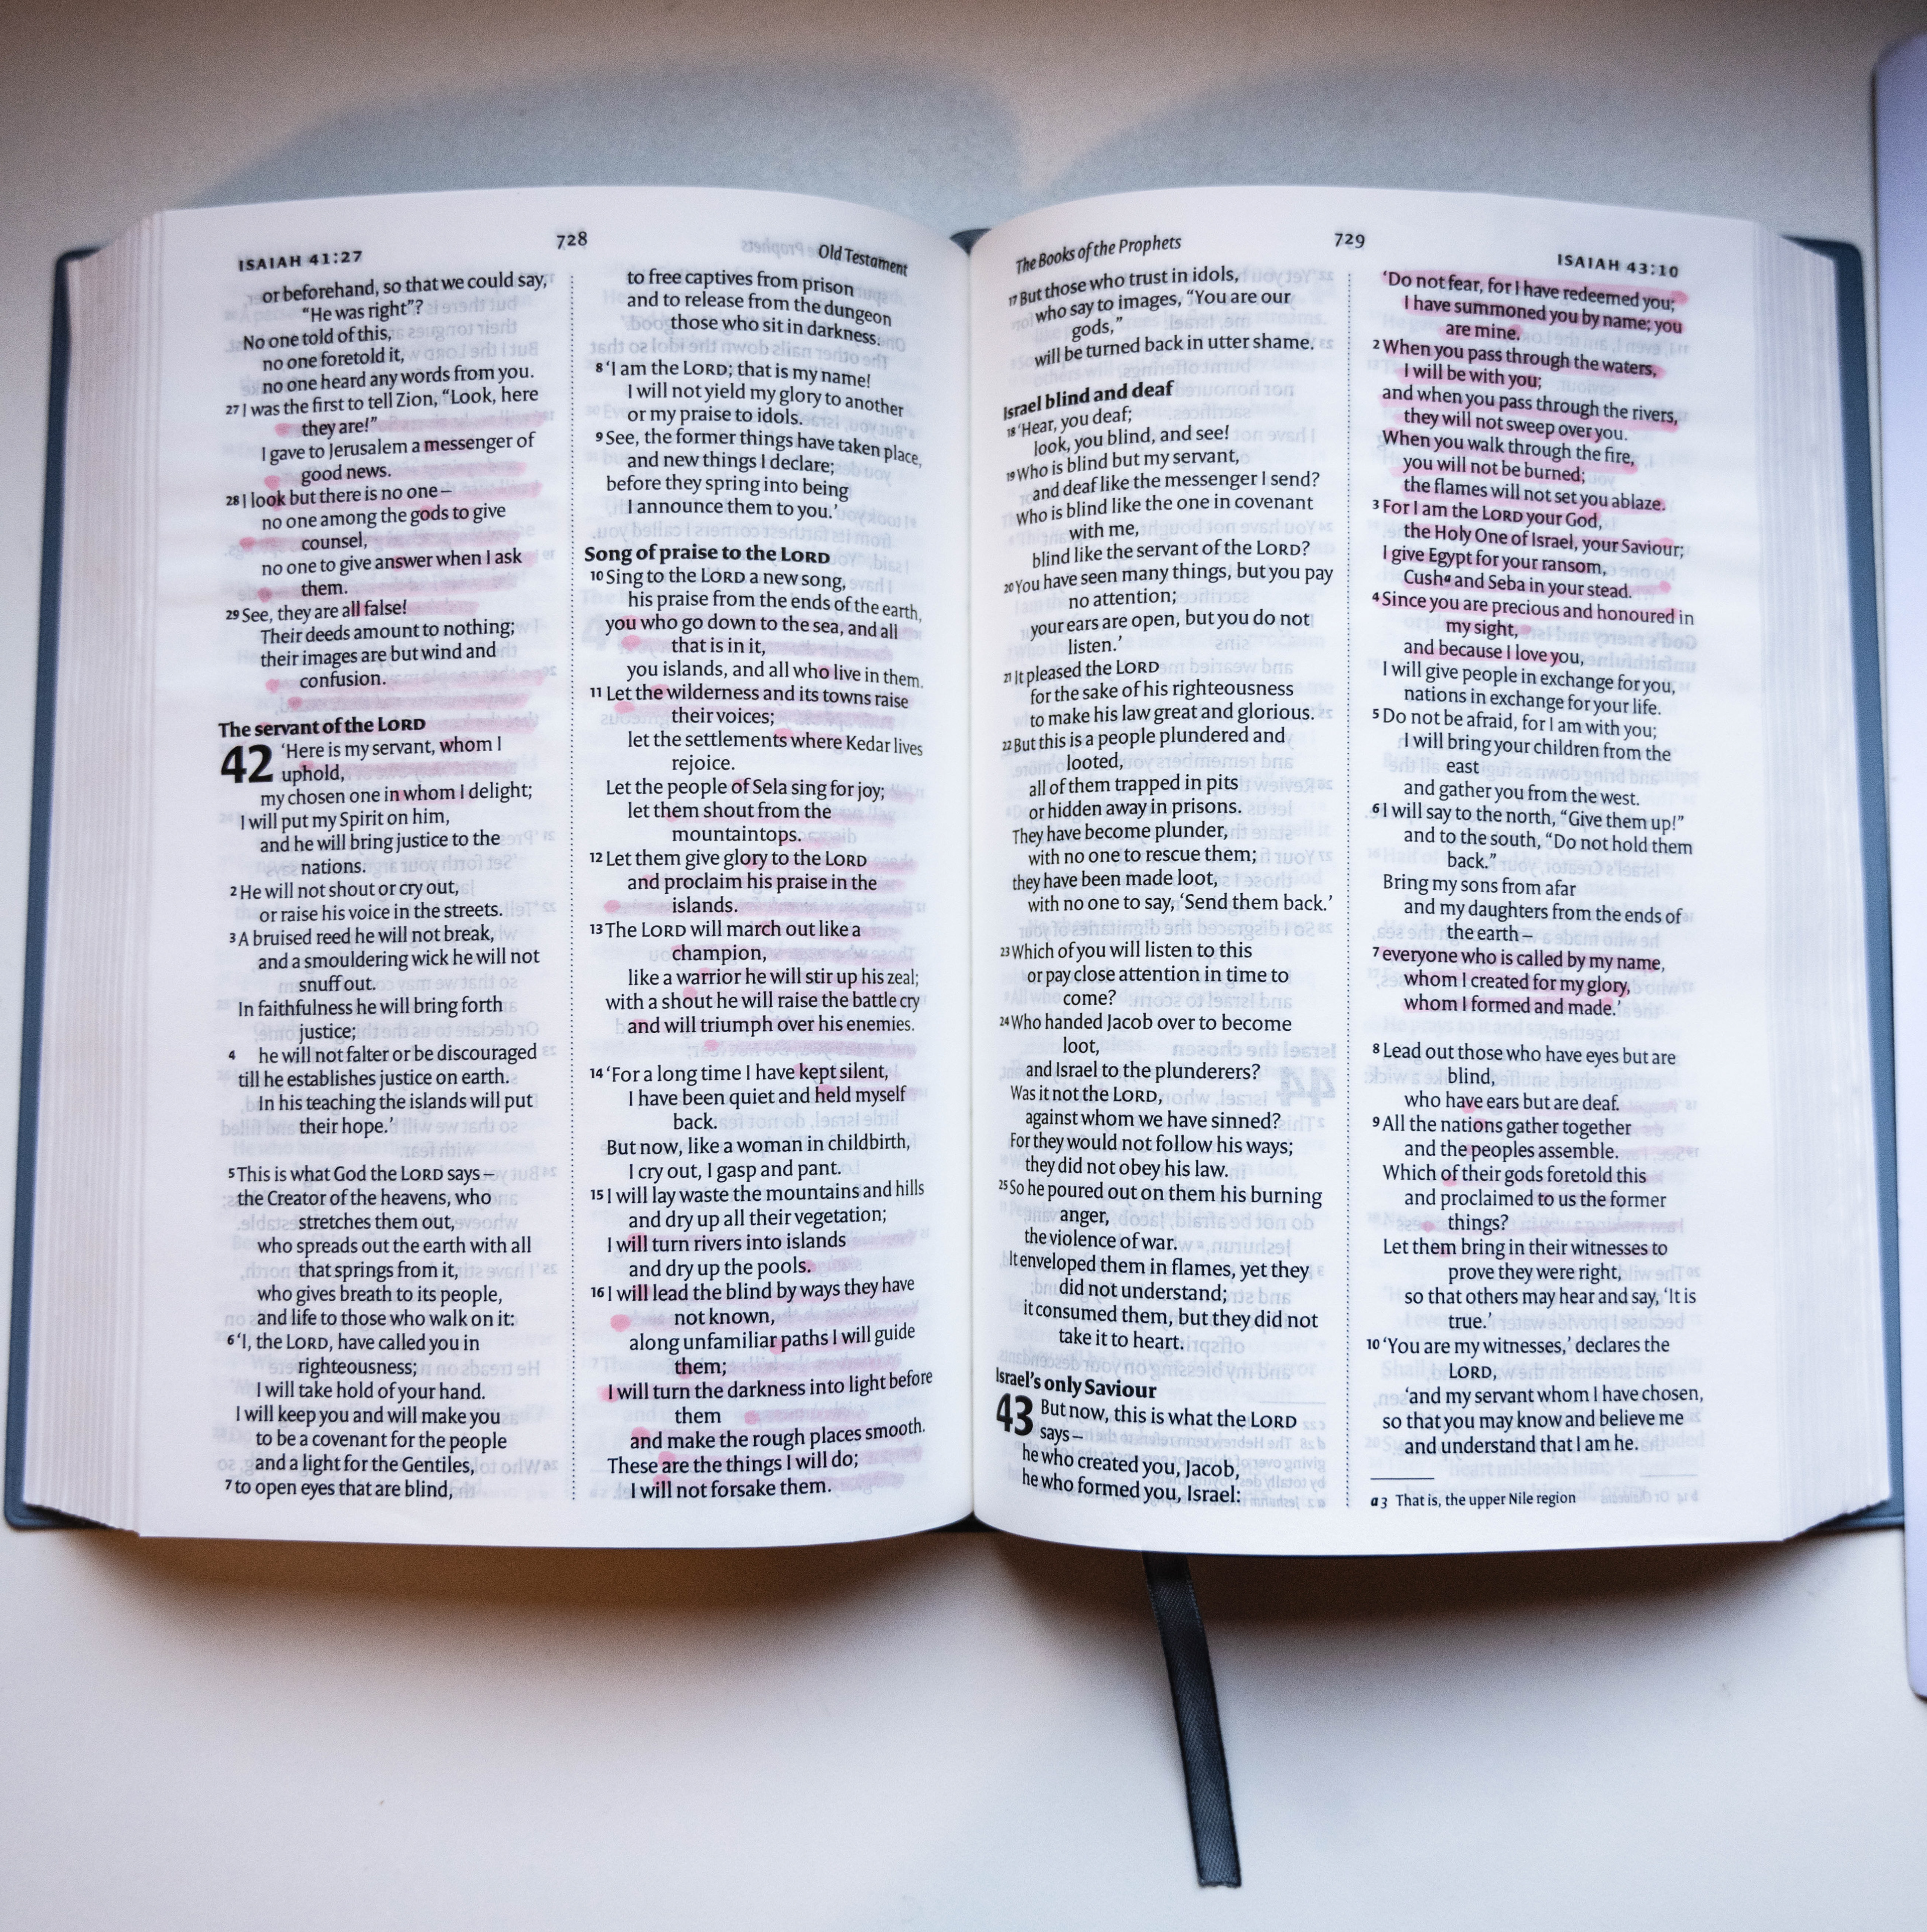 ISAIAH 41:27
728
Old Testament
or beforehand, so that we could say,
“He was right”?
No one told of this,
no one foretold it,
no one heard any words from you.
27 I was the first to tell Zion, “Look, here
they are!”
I gave to Jerusalem a messenger of
good news.
28 I look but there is no one –
no one among the gods to give
counsel,
no one to give answer when I ask
them.
29 See, they are all false!
Their deeds amount to nothing;
their images are but wind and
confusion.
The servant of the LORD
42 ‘Here is my servant, whom I
uphold,
my chosen one in whom I delight;
I will put my Spirit on him,
and he will bring justice to the
nations.
2 He will not shout or cry out,
or raise his voice in the streets.
3 A bruised reed he will not break,
and a smouldering wick he will not
snuff out.
In faithfulness he will bring forth
justice;
4 he will not falter or be discouraged
till he establishes justice on earth.
In his teaching the islands will put
their hope.’
5 This is what God the LORD says –
the Creator of the heavens, who
stretches them out,
who spreads out the earth with all
that springs from it,
who gives breath to its people,
and life to those who walk on it:
6 ‘I, the LORD, have called you in
righteousness;
I will take hold of your hand.
I will keep you and will make you
to be a covenant for the people
and a light for the Gentiles,
7 to open eyes that are blind,
to free captives from prison
and to release from the dungeon
those who sit in darkness.
8 ‘I am the LORD; that is my name!
I will not yield my glory to another
or my praise to idols.
9 See, the former things have taken place,
and new things I declare;
before they spring into being
I announce them to you.’
Song of praise to the LORD
10 Sing to the LORD a new song,
his praise from the ends of the earth,
you who go down to the sea, and all
that is in it,
you islands, and all who live in them.
11 Let the wilderness and its towns raise
their voices;
let the settlements where Kedar lives
rejoice.
Let the people of Sela sing for joy;
let them shout from the
mountaintops.
12 Let them give glory to the LORD
and proclaim his praise in the
islands.
13 The LORD will march out like a
champion,
like a warrior he will stir up his zeal;
with a shout he will raise the battle cry
and will triumph over his enemies.
14 ‘For a long time I have kept silent,
I have been quiet and held myself
back.
But now, like a woman in childbirth,
I cry out, I gasp and pant.
15 I will lay waste the mountains and hills
and dry up all their vegetation;
I will turn rivers into islands
and dry up the pools.
16 I will lead the blind by ways they have
not known,
along unfamiliar paths I will guide
them;
I will turn the darkness into light before
them
and make the rough places smooth.
These are the things I will do;
I will not forsake them.
The Books of the Prophets
729
ISAIAH 43:10
17 But those who trust in idols,
who say to images, “You are our
gods,”
will be turned back in utter shame.
Israel blind and deaf
18 ‘Hear, you deaf;
look, you blind, and see!
19 Who is blind but my servant,
and deaf like the messenger I send?
Who is blind like the one in covenant
with me,
blind like the servant of the LORD?
20 You have seen many things, but you pay
no attention;
your ears are open, but you do not
listen.’
21 It pleased the LORD
for the sake of his righteousness
to make his law great and glorious.
22 But this is a people plundered and
looted,
all of them trapped in pits
or hidden away in prisons.
They have become plunder,
with no one to rescue them;
they have been made loot,
with no one to say, ‘Send them back.’
23 Which of you will listen to this
or pay close attention in time to
come?
24 Who handed Jacob over to become
loot,
and Israel to the plunderers?
Was it not the LORD,
against whom we have sinned?
For they would not follow his ways;
they did not obey his law.
25 So he poured out on them his burning
anger,
the violence of war.
It enveloped them in flames, yet they
did not understand;
it consumed them, but they did not
take it to heart.
Israel’s only Saviour
43 But now, this is what the LORD
says –
he who created you, Jacob,
he who formed you, Israel:
‘Do not fear, for I have redeemed you;
I have summoned you by name; you
are mine.
2 When you pass through the waters,
I will be with you;
and when you pass through the rivers,
they will not sweep over you.
When you walk through the fire,
you will not be burned;
the flames will not set you ablaze.
3 For I am the LORD your God,
the Holy One of Israel, your Saviour;
I give Egypt for your ransom,
Cush a and Seba in your stead.
4 Since you are precious and honoured in
my sight,
and because I love you,
I will give people in exchange for you,
nations in exchange for your life.
5 Do not be afraid, for I am with you;
I will bring your children from the
east
and gather you from the west.
6 I will say to the north, “Give them up!”
and to the south, “Do not hold them
back.”
Bring my sons from afar
and my daughters from the ends of
the earth –
7 everyone who is called by my name,
whom I created for my glory,
whom I formed and made.’
8 Lead out those who have eyes but are
blind,
who have ears but are deaf.
9 All the nations gather together
and the peoples assemble.
Which of their gods foretold this
and proclaimed to us the former
things?
Let them bring in their witnesses to
prove they were right,
so that others may hear and say, ‘It is
true.’
10 ‘You are my witnesses,’ declares the
LORD,
‘and my servant whom I have chosen,
so that you may know and believe me
and understand that I am he.
a 3 That is, the upper Nile region